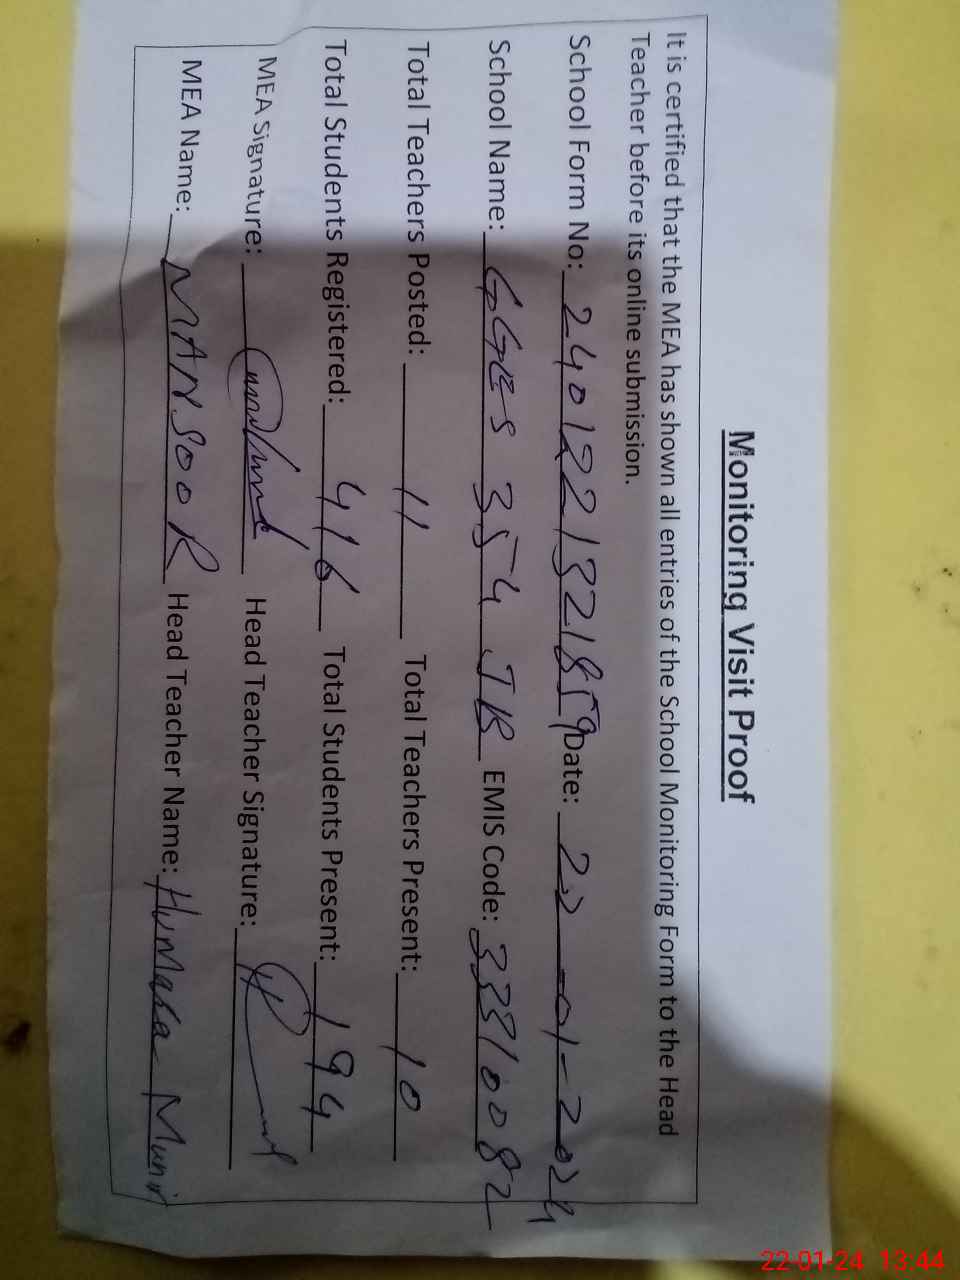 Monitoring Visit Proof
It is certified that the MEA has shown all entries of the School Monitoring Form to the Head
Teacher before its online submission.
School Form No: 2401221321859 Date: 22-01-2024
School Name: GGES 354 JB EMIS Code: 33310082
Total Teachers Posted: 11 Total Teachers Present: 10
Total Students Registered: 416 Total Students Present: 194
MEA Signature: Head Teacher Signature:
MEA Name: MANSOOR Head Teacher Name: Humaea Munir
22-01-24 13:44